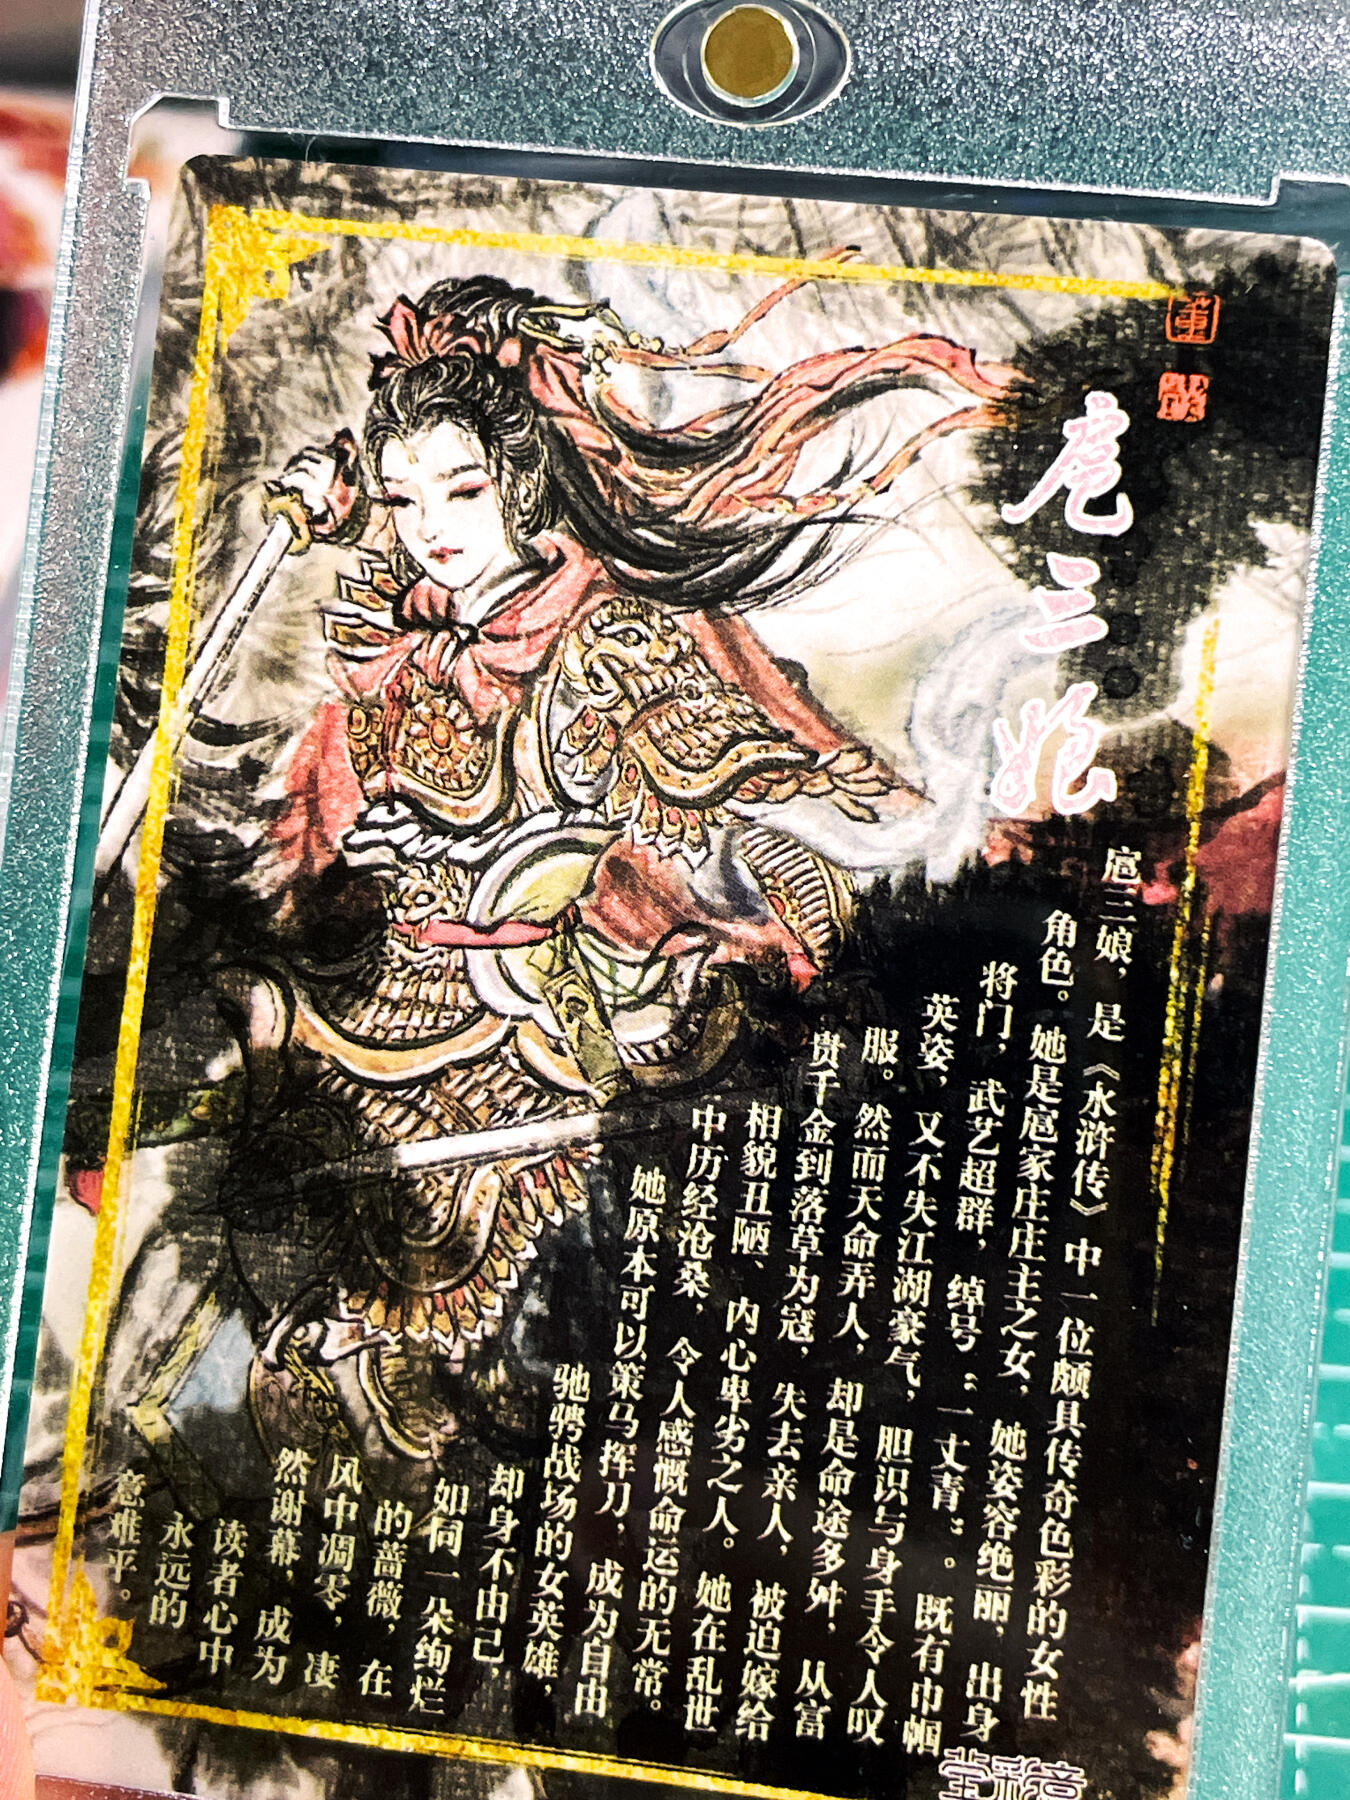 扈三娘
扈三娘，是《水浒传》中一位颇具传奇色彩的女性
角色。她是扈家庄庄主之女，她姿容绝丽，出身
将门，武艺超群，绰号“一丈青”。既有巾帼
英姿，又不失江湖豪气，胆识与身手令人叹
服。然而天命弄人，却是命途多舛，从富
贵千金到落草为寇，失去亲人，被迫嫁给
相貌丑陋、内心卑劣之人。她在乱世
中历经沧桑，令人感慨命运的无常。
她原本可以策马挥刀，成为自由
驰骋战场的女英雄，
却身不由己，
如同一朵绚烂
的蔷薇，在
风中凋零，凄
然谢幕，成为
读者心中
永远的
意难平。